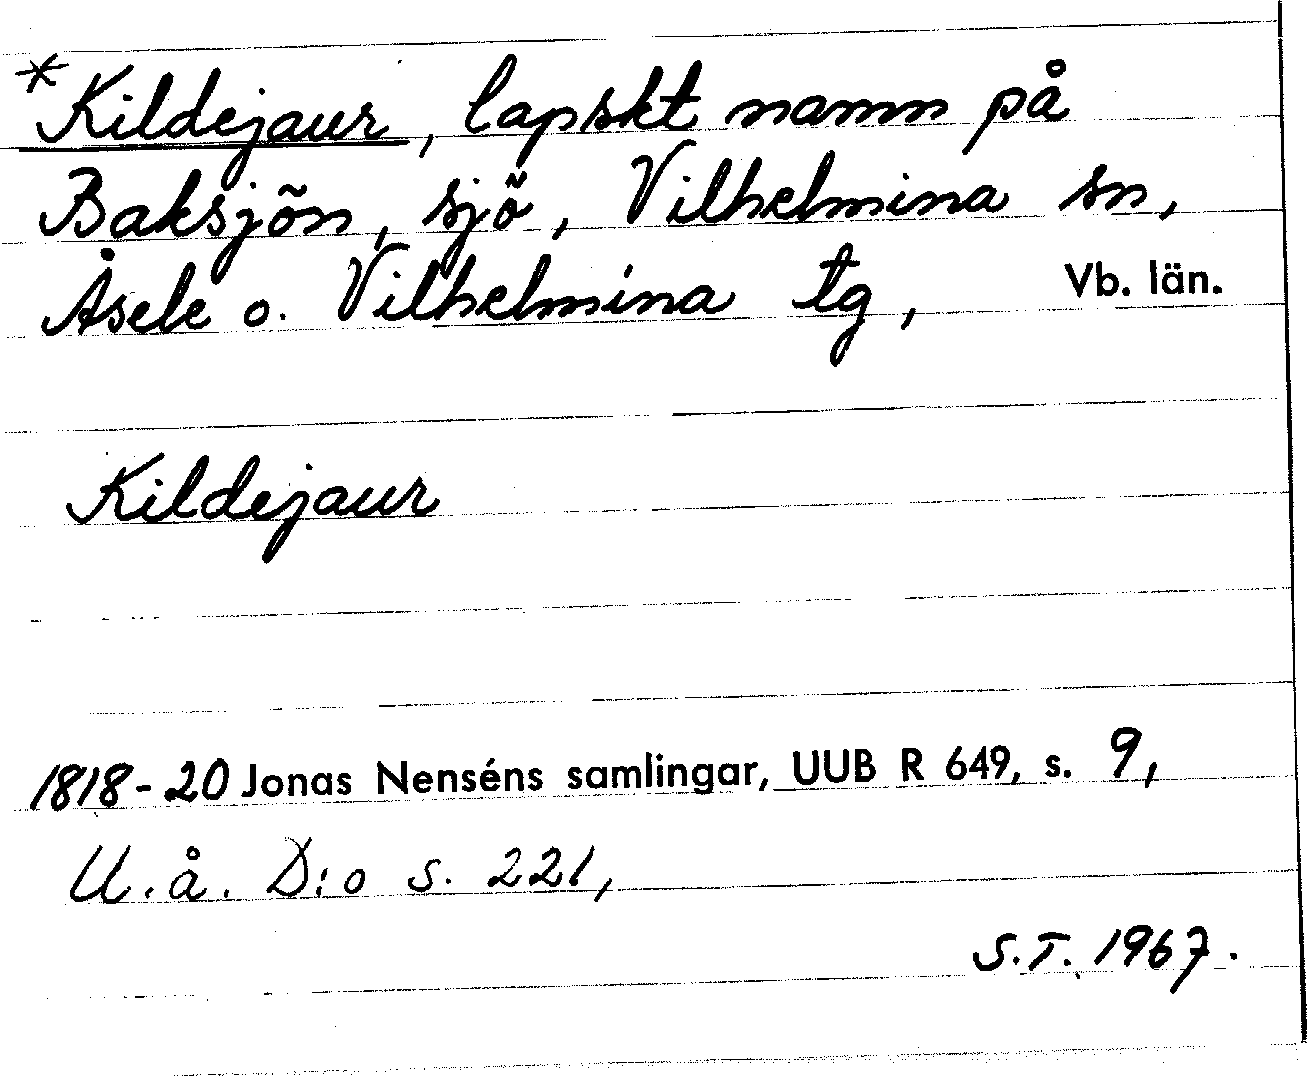 *Kildejaur, lapskt namn på
Baksjön, sjö, Vilhelmina sn,
Åsele o. Vilhelmina tg, Vb. län.
Kildejaur
1818-20 Jonas Nenséns samlingar, UUB R 649, s. 9,
U.å. D:o s. 221,
S.T. 1967.